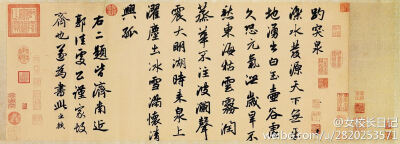 趵突泉
濼水發源天下無平
地湧出白玉壺谷虛
久恐元氣洩歲旱不
愁東海枯雲霧潤
蒸華不注波瀾聲
震大明湖時來泉上
濯塵土冰雪滿懷清
興孤
右二題皆濟南近
郭佳處公謹家故
齊也遂為書此孟頫
@女校长日记
weibo.com/u/2820253571